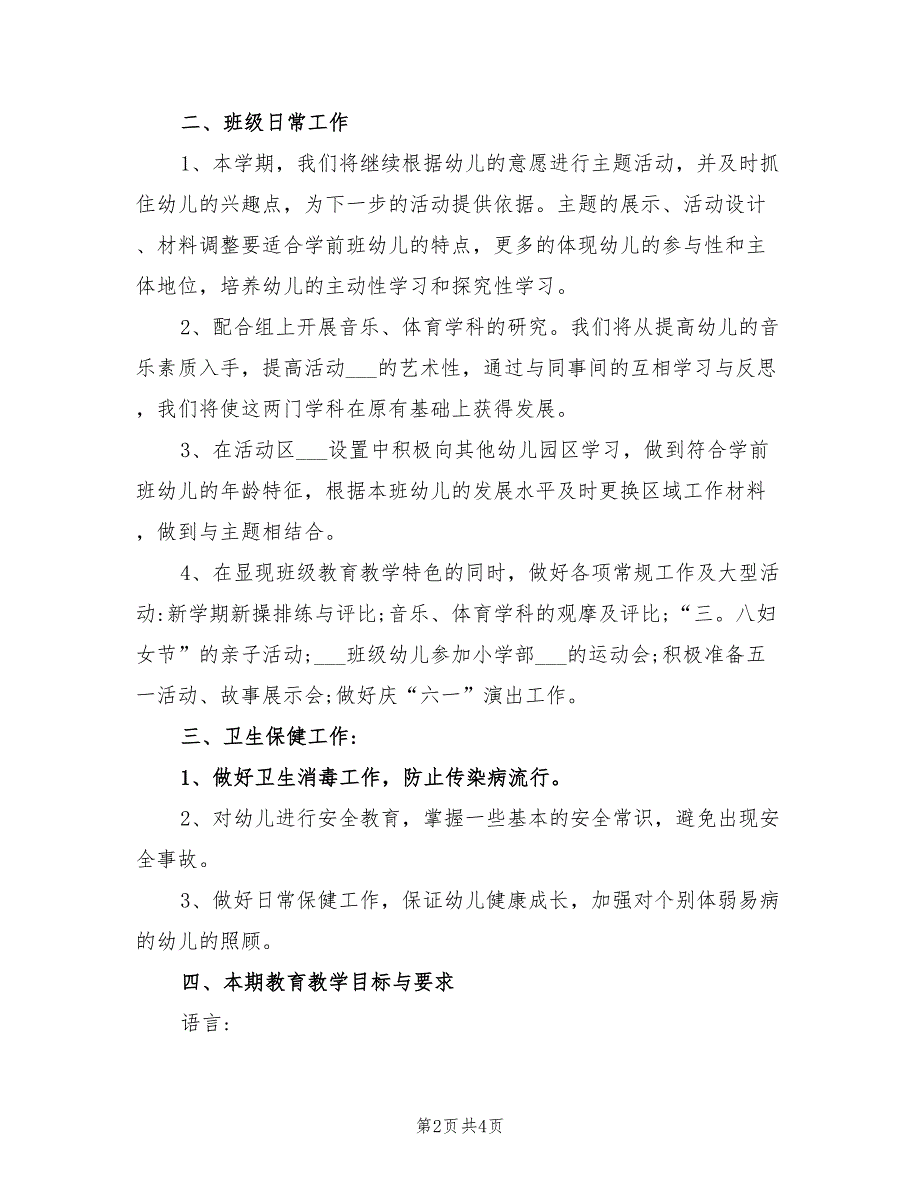 二、班级日常工作
1、本学期，我们将继续根据幼儿的意愿进行主题活动，并及时抓
住幼儿的兴趣点，为下一步的活动提供依据。主题的展示、活动设计
、材料调整要适合学前班幼儿的特点，更多的体现幼儿的参与性和主
体地位，培养幼儿的主动性学习和探究性学习。
2、配合组上开展音乐、体育学科的研究。我们将从提高幼儿的音
乐素质入手，提高活动___的艺术性，通过与同事间的互相学习与反思
，我们将使这两门学科在原有基础上获得发展。
3、在活动区___设置中积极向其他幼儿园区学习，做到符合学前
班幼儿的年龄特征，根据本班幼儿的发展水平及时更换区域工作材料
，做到与主题相结合。
4、在显现班级教育教学特色的同时，做好各项常规工作及大型活
动:新学期新操排练与评比;音乐、体育学科的观摩及评比;“三。八妇
女节”的亲子活动;___班级幼儿参加小学部___的运动会;积极准备五
一活动、故事展示会;做好庆“六一”演出工作。
三、卫生保健工作:
1、做好卫生消毒工作，防止传染病流行。
2、对幼儿进行安全教育，掌握一些基本的安全常识，避免出现安
全事故。
3、做好日常保健工作，保证幼儿健康成长，加强对个别体弱易病
的幼儿的照顾。
四、本期教育教学目标与要求
语言:
第2页共4页